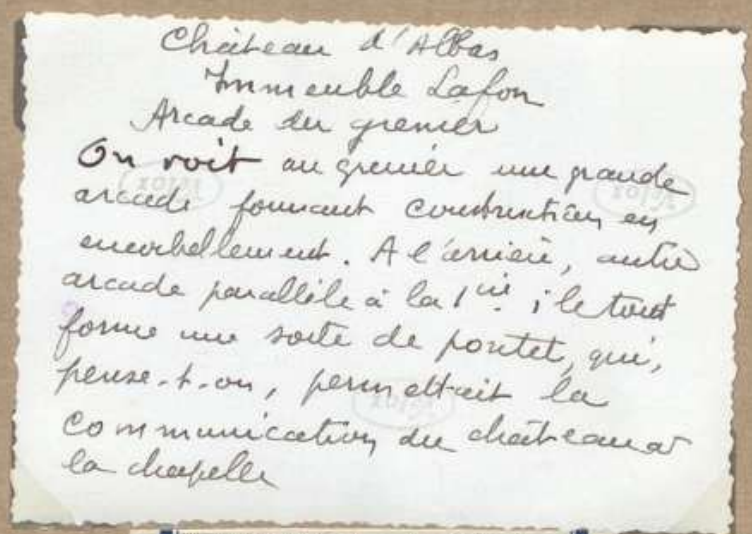 Château d'Albas
Immeuble Lafon
Arcade du grenier
On voit au grenier une grande
arcade formant construction en
encorbellement. A l'arrière, autre
arcade parallèle à la 1ière ; le tout
forme une sorte de pontet, qui,
pense-t-on, permettait la
communication du château à
la chapelle